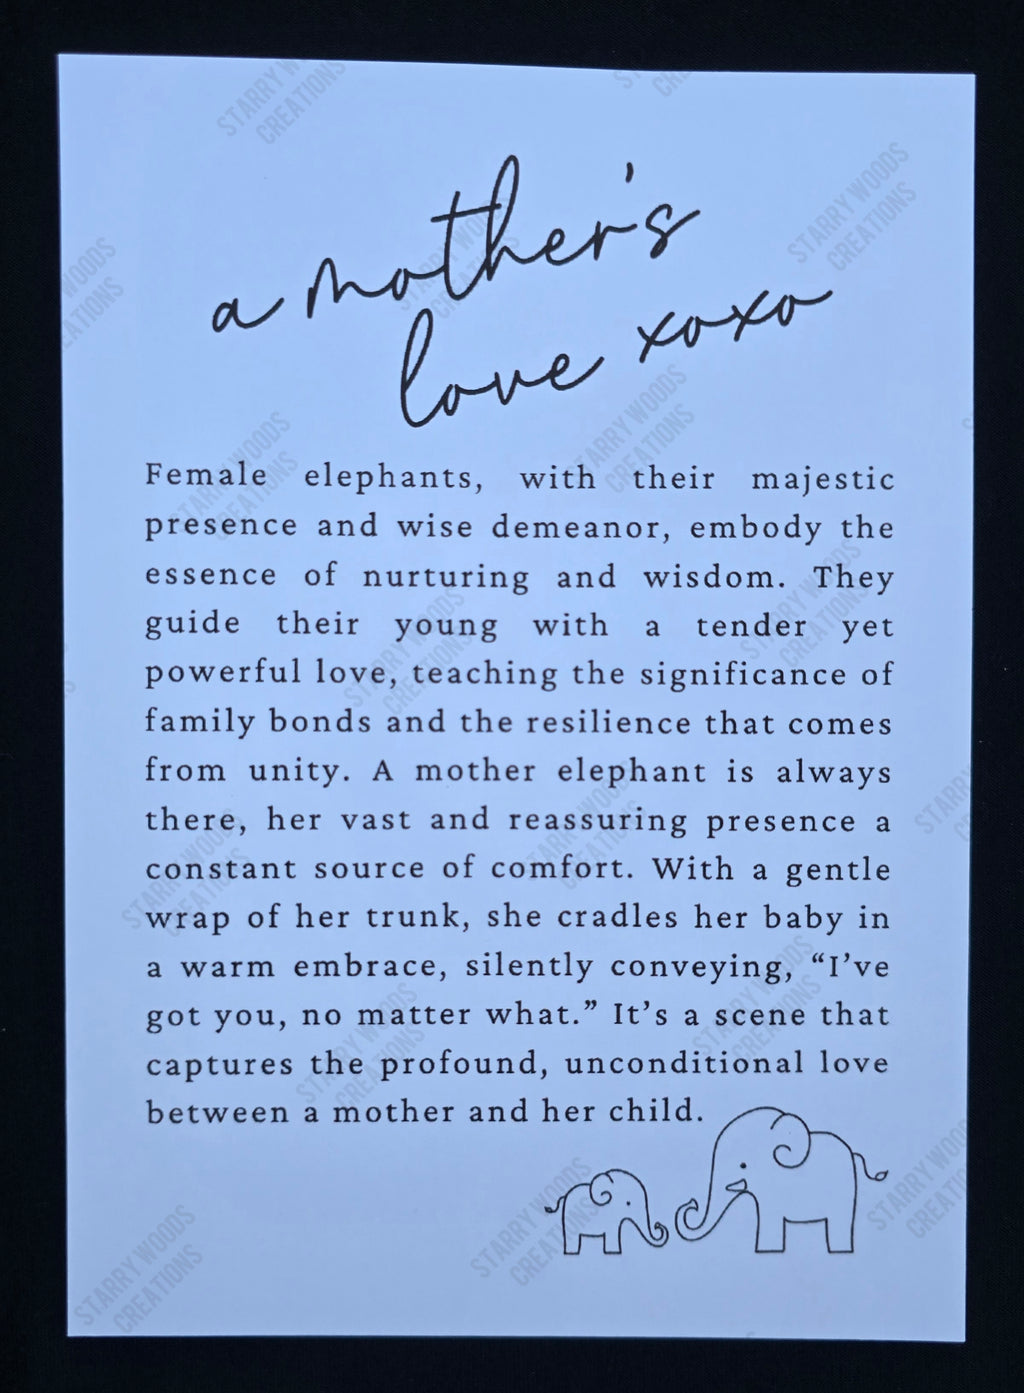 a mother's
love xoxo
Female elephants, with their majestic
presence and wise demeanor, embody the
essence of nurturing and wisdom. They
guide their young with a tender yet
powerful love, teaching the significance of
family bonds and the resilience that comes
from unity. A mother elephant is always
there, her vast and reassuring presence a
constant source of comfort. With a gentle
wrap of her trunk, she cradles her baby in
a warm embrace, silently conveying, “I’ve
got you, no matter what.” It’s a scene that
captures the profound, unconditional love
between a mother and her child.
STARRY WOODS
CREATIONS